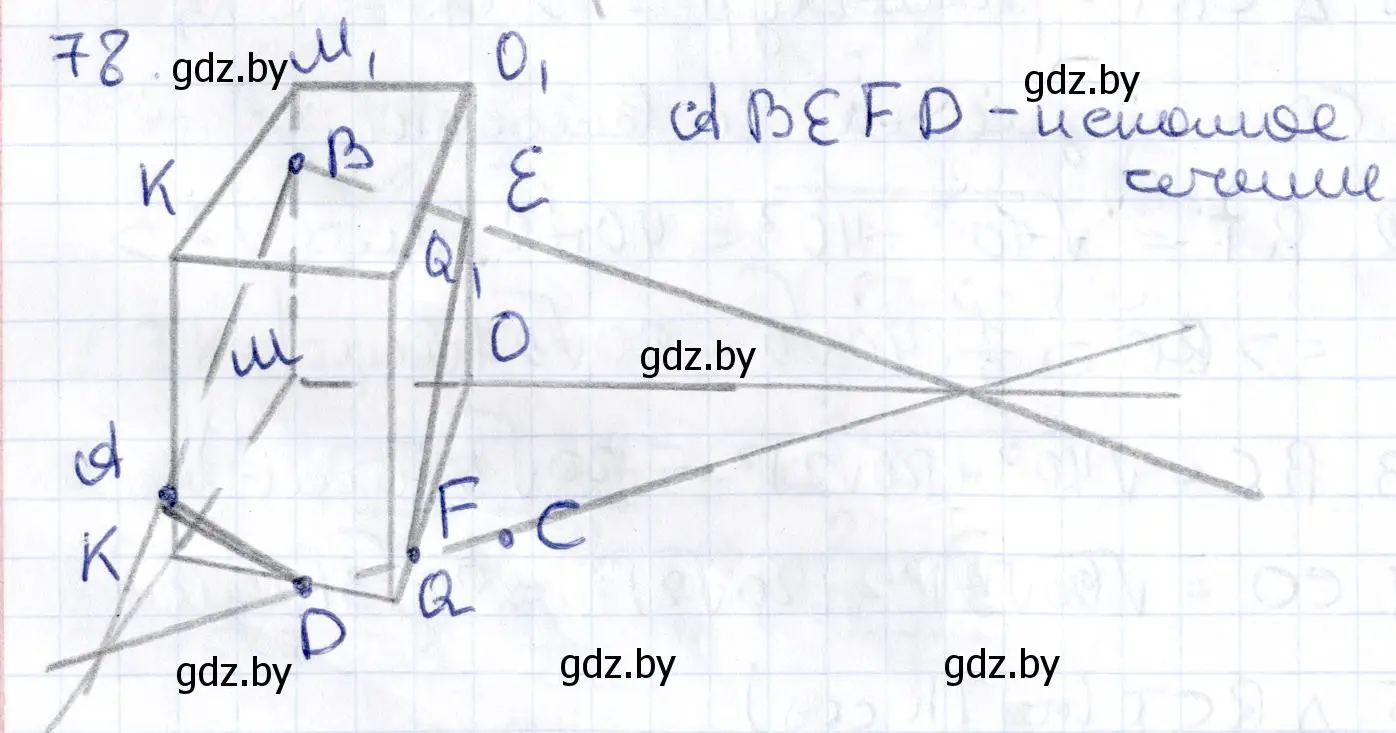 78.
gdz.by
M₁
O₁
gdz.by
ABEFD - искомое
сечение
K
B
E
Q₁
M
O
gdz.by
A
F
C
K
Q
D
gdz.by
gdz.by
gdz.by